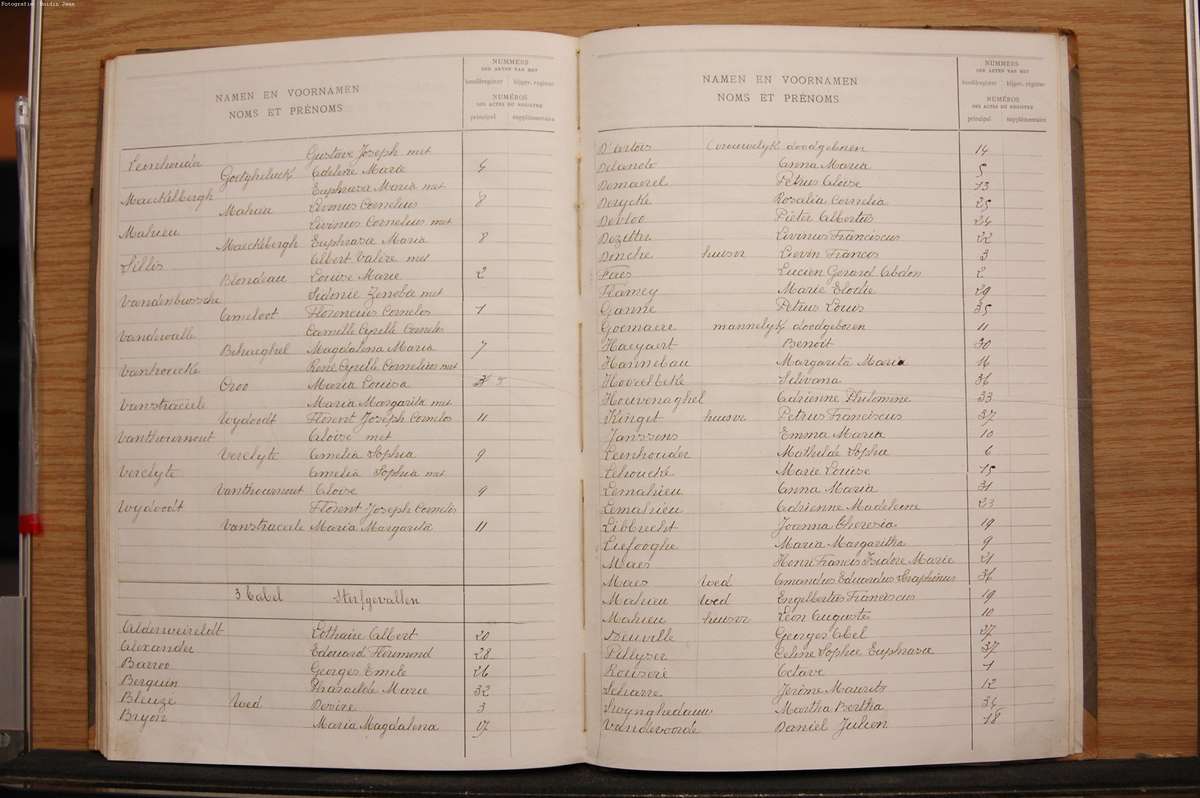 Fotografie: Buidin Jean
NAMEN EN VOORNAMEN
NOMS ET PRÉNOMS
NUMMERS
DER AKTEN VAN HET
hoofdregister bijgev. register
NUMÉROS
DES ACTES DU REGISTRE
principal supplémentaire
Leenhouder Gustave Joseph met
Goetgheluck Adeline Marie 4
Maeckelbergh Euphrasie Maria met
Mahieu Livinus Cornelius 8
Mahieu Livinus Cornelius met
Maeckelbergh Euphrasie Maria 8
Sillis Albert Valère met
Blondeau Louise Marie 2
Vandenbussche Sidonie Zenobe met
Ameloot Florencius Cornelos 1
Vandewalle Camille Cyrille Cornelis
Behaeghel Magdalena Maria 7
Vanhoecke René Cyrille Cornelius met
Croo Maria Louisa 3 5
Vanstraceele Maria Margarita met
Wydoodt Florent Joseph Cornelos 11
Vanthournout Aloïse met
Verelyte Amelia Sophia 9
Verelyte Amelia Sophia met
Vanthournout Aloise 9
Wydoodt Florent Joseph Cornelis
Vanstraceele Maria Margarita 11
3 Tabel Sterfgevallen
Alderweireldt Lothaire Albert 20
Alexander Edouard Floimond 28
Barroo Georges Emile 26
Berquin Pharaïlde Marie 32
Bleuze Wed Desiré 3
Bryon Maria Magdalena 17
NAMEN EN VOORNAMEN
NOMS ET PRÉNOMS
NUMMERS
DER AKTEN VAN HET
hoofdregister bijgev. register
NUMÉROS
DES ACTES DU REGISTRE
principal supplémentaire
D'artois (vrouwelyk doodgeboren 14
Delanote Anna Maria 5
Demaerel Petrus Aloise 13
Derycke Rosalia Cornelia 25
Devloo Pieter Albertus 24
Dezitter Livinus Franciscus 22
Dinche huisvr Lievin Francos 3
Faes Lucien Gerard Abdon 2
Flamey Marie Elodie 29
Ganne Petrus Louis 35
Goemaere mannelyk doodgeboren 11
Haeyaert Benoit 30
Hannebau Margarita Maria 16
Hoorelbeke Silvana 36
Hoevenaghel Adrienne Philomine 33
Kingut huisvr Petrus Franciscus 37
Janssens Emma Maria 10
Leenhouder Mathilde Sophie 6
Lehoucke Marie Louise 15
Lemahieu Anna Maria 31
Lemahieu Adrienne Madeleine 23
Libbrecht Joanna Theresia 19
Liefooghe Maria Margaritha 9
Maes Henri Francis Isidore Marie 21
Maes Wed Amandus Eduardus Seraphinus 36
Mahieu Wed Engelbertus Franciscus 19
Mahieu huisvr Leon Auguste 10
Neuville Georges Abel 27
Pillyser Celina Sophie Euphrasia 37
Rouseré Octave 1
Scharre Jerôme Maurits 12
Swynghedauw Martha Bertha 34
Vandevoorde Daniel Julien 18